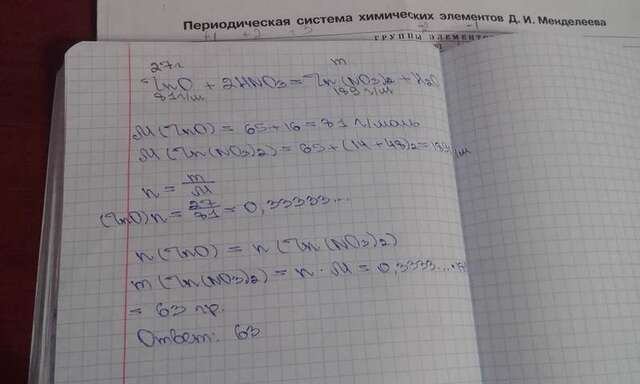 Периодическая система химических элементов Д. И. Менделеева
ГРУППЫ ЭЛЕМЕНТОВ
27г m
ZnO + 2HNO3 = Zn(NO3)2 + H2O
81 г/м 189 г/м
M(ZnO) = 65+16 = 81 г/моль
M(Zn(NO3)2) = 65 + (14 + 48)2 = 189 г/м
n = m/M
(ZnO) n = 27/81 = 0,33333...
n(ZnO) = n(Zn(NO3)2)
m(Zn(NO3)2) = n · M = 0,3333...·
= 63 гр.
Ответ: 63